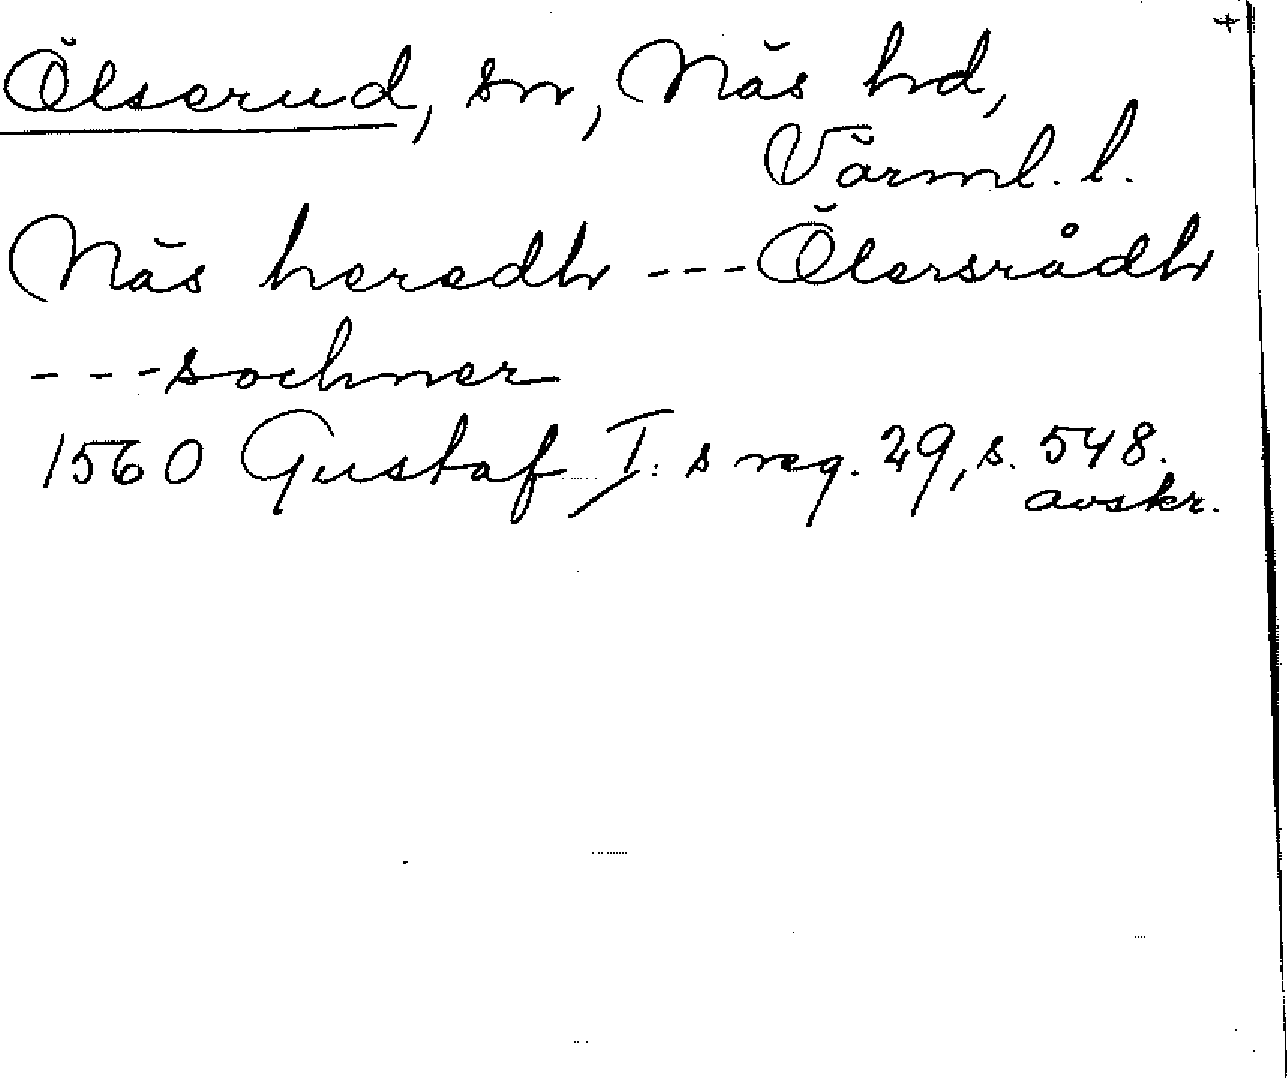 +
Ölserud, sn, Näs hd,
Värml. l.
Näs heredh --- Ölersrådh
--- sochner
1560 Gustaf I: s reg. 29, s. 548.
avskr.